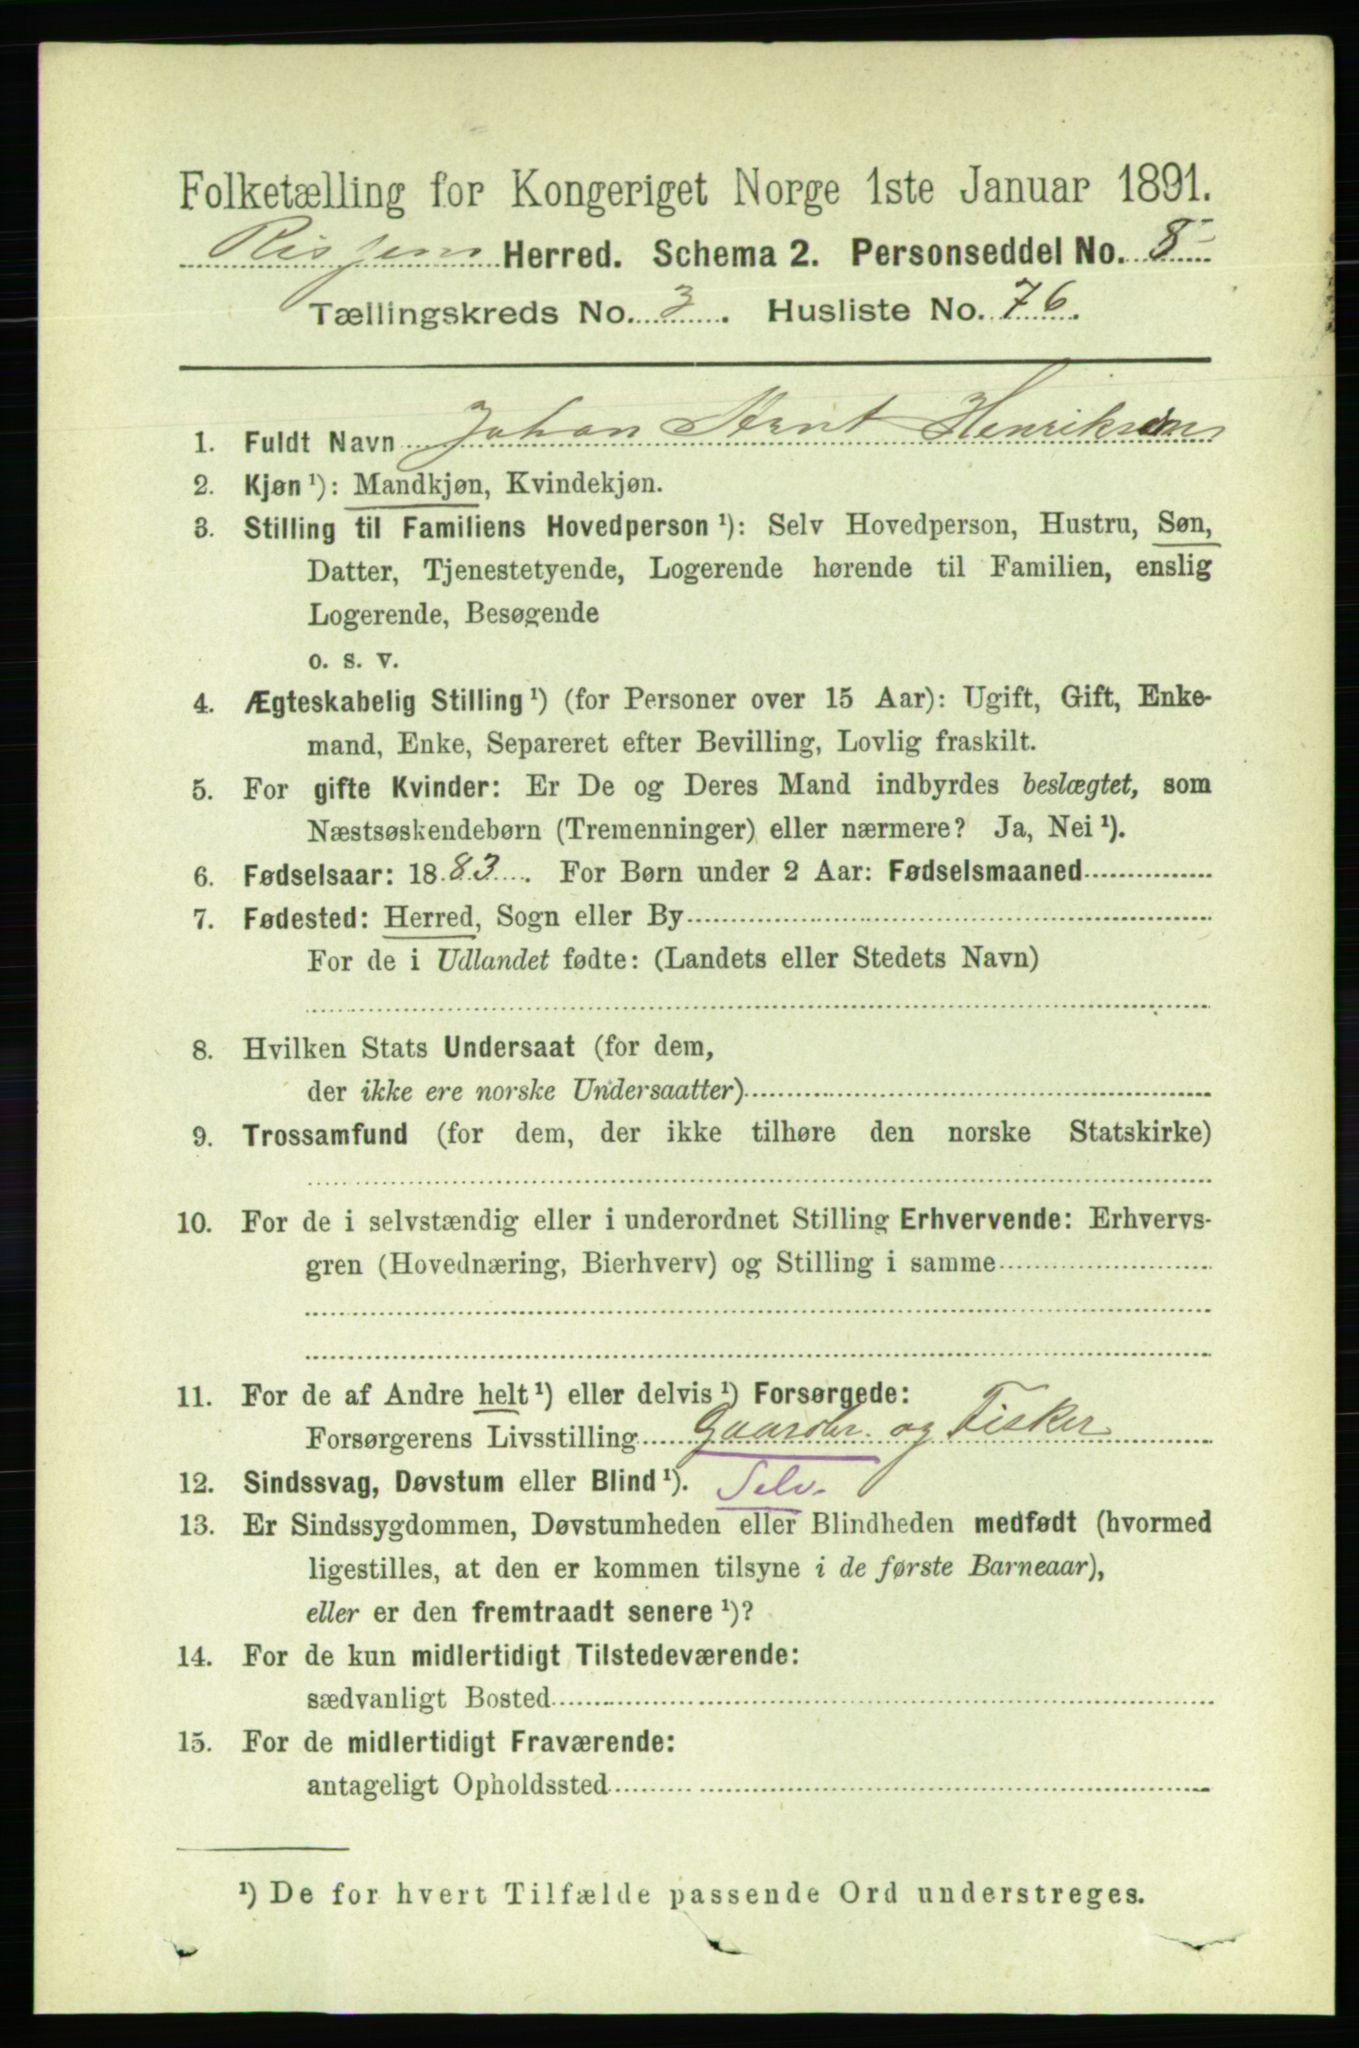 Folketælling for Kongeriget Norge 1ste Januar 1891.
Rissen Herred. Schema 2. Personseddel No. 8
Tællingskreds No. 3. Husliste No. 76.
1. Fuldt Navn Johan Arnt Henriksen
2. Kjøn ¹): Mandkjøn, Kvindekjøn.
3. Stilling til Familiens Hovedperson ¹): Selv Hovedperson, Hustru, Søn,
Datter, Tjenestetyende, Logerende hørende til Familien, enslig
Logerende, Besøgende
o. s. v.
4. Ægteskabelig Stilling ¹) (for Personer over 15 Aar): Ugift, Gift, Enke-
mand, Enke, Separeret efter Bevilling, Lovlig fraskilt.
5. For gifte Kvinder: Er De og Deres Mand indbyrdes beslægtet, som
Næstsøskendebørn (Tremenninger) eller nærmere? Ja, Nei ¹).
6. Fødselsaar: 1883. For Børn under 2 Aar: Fødselsmaaned
7. Fødested: Herred, Sogn eller By
For de i Udlandet fødte: (Landets eller Stedets Navn)
8. Hvilken Stats Undersaat (for dem,
der ikke ere norske Undersaatter)
9. Trossamfund (for dem, der ikke tilhøre den norske Statskirke)
10. For de i selvstændig eller i underordnet Stilling Erhvervende: Erhvervs-
gren (Hovednæring, Bierhverv) og Stilling i samme
11. For de af Andre helt ¹) eller delvis ¹) Forsørgede:
Forsørgerens Livsstilling Gaardbr. og Fisker
12. Sindssvag, Døvstum eller Blind ¹). Selv.
13. Er Sindssygdommen, Døvstumheden eller Blindheden medfødt (hvormed
ligestilles, at den er kommen tilsyne i de første Barneaar),
eller er den fremtraadt senere ¹)?
14. For de kun midlertidigt Tilstedeværende:
sædvanligt Bosted
15. For de midlertidigt Fraværende:
antageligt Opholdssted
¹) De for hvert Tilfælde passende Ord understreges.